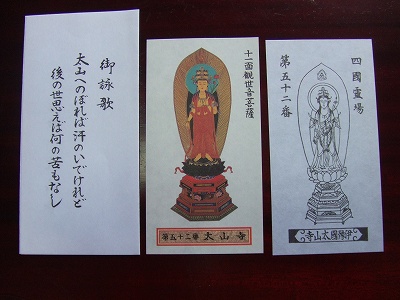 御詠歌
太山へのぼれば汗のいでけれど
後の世思えば何の苦もなし
十一面観世音菩薩
第五十二番 太山寺
四國霊場
第五十二番
伊豫國太山寺